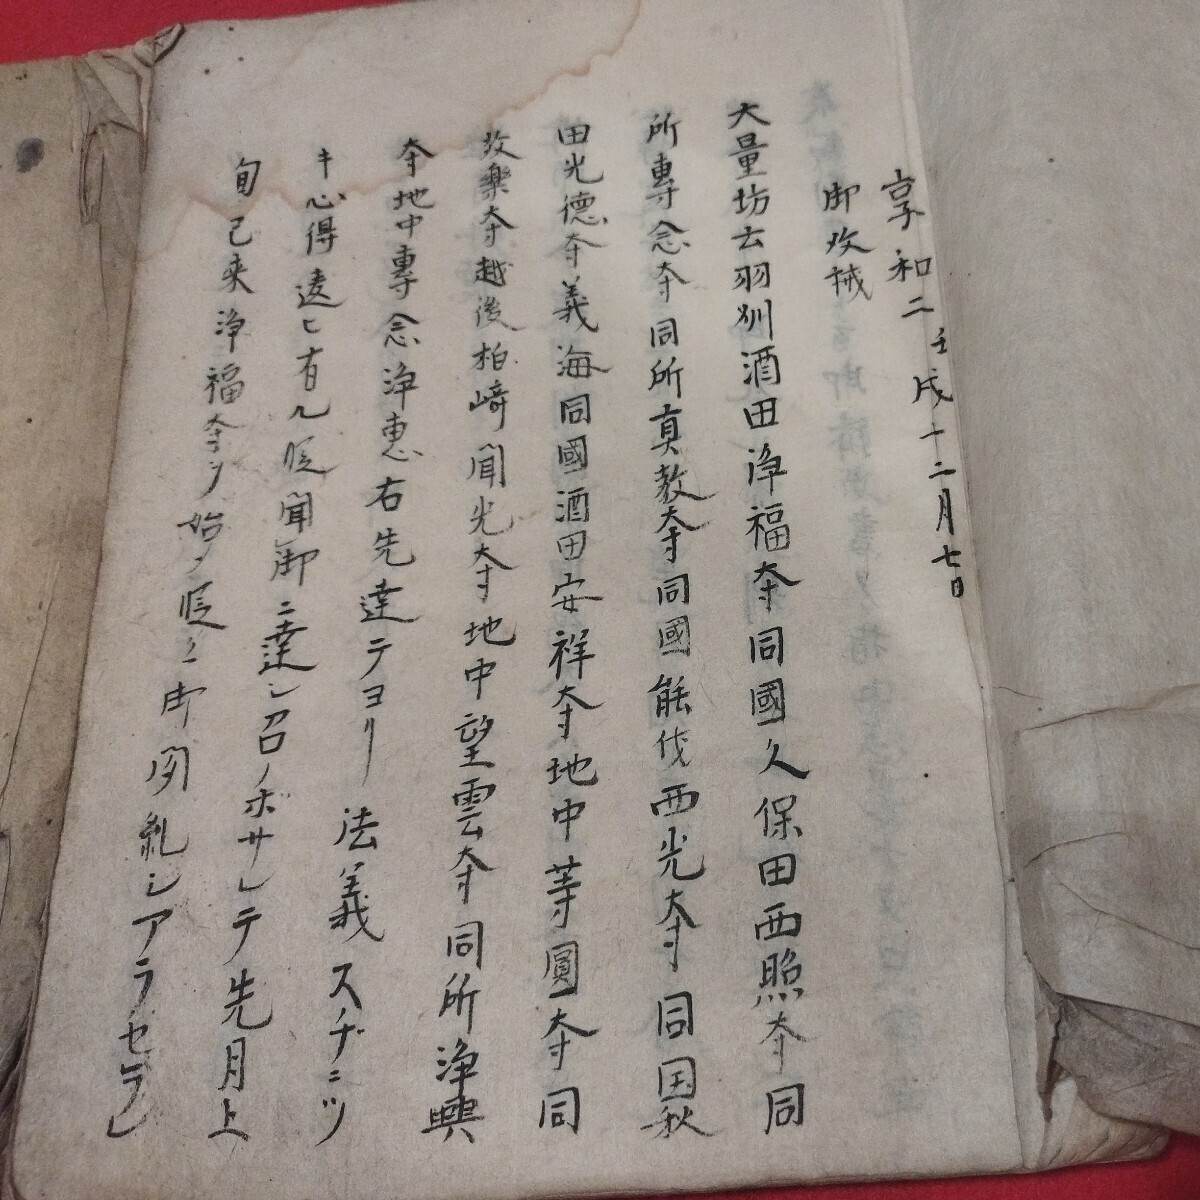 享和二壬戌十二月七日
御改械
大量坊云羽州酒田浄福寺同國久保田西照寺同
所專念寺同所真教寺同國能代西光寺同国秋
田光德寺義海同國酒田安祥寺地中等圓寺同
故樂寺越後柏﨑聞光寺地中望雲寺同所浄興
寺地中專念浄恵右先達テヨリ法義スヂニツ
キ心得違ヒ有ル段聞御ニ達シ召ノボサレテ先月上
旬已来浄福寺ヲ始メ段々御聞糺シアラセラレ